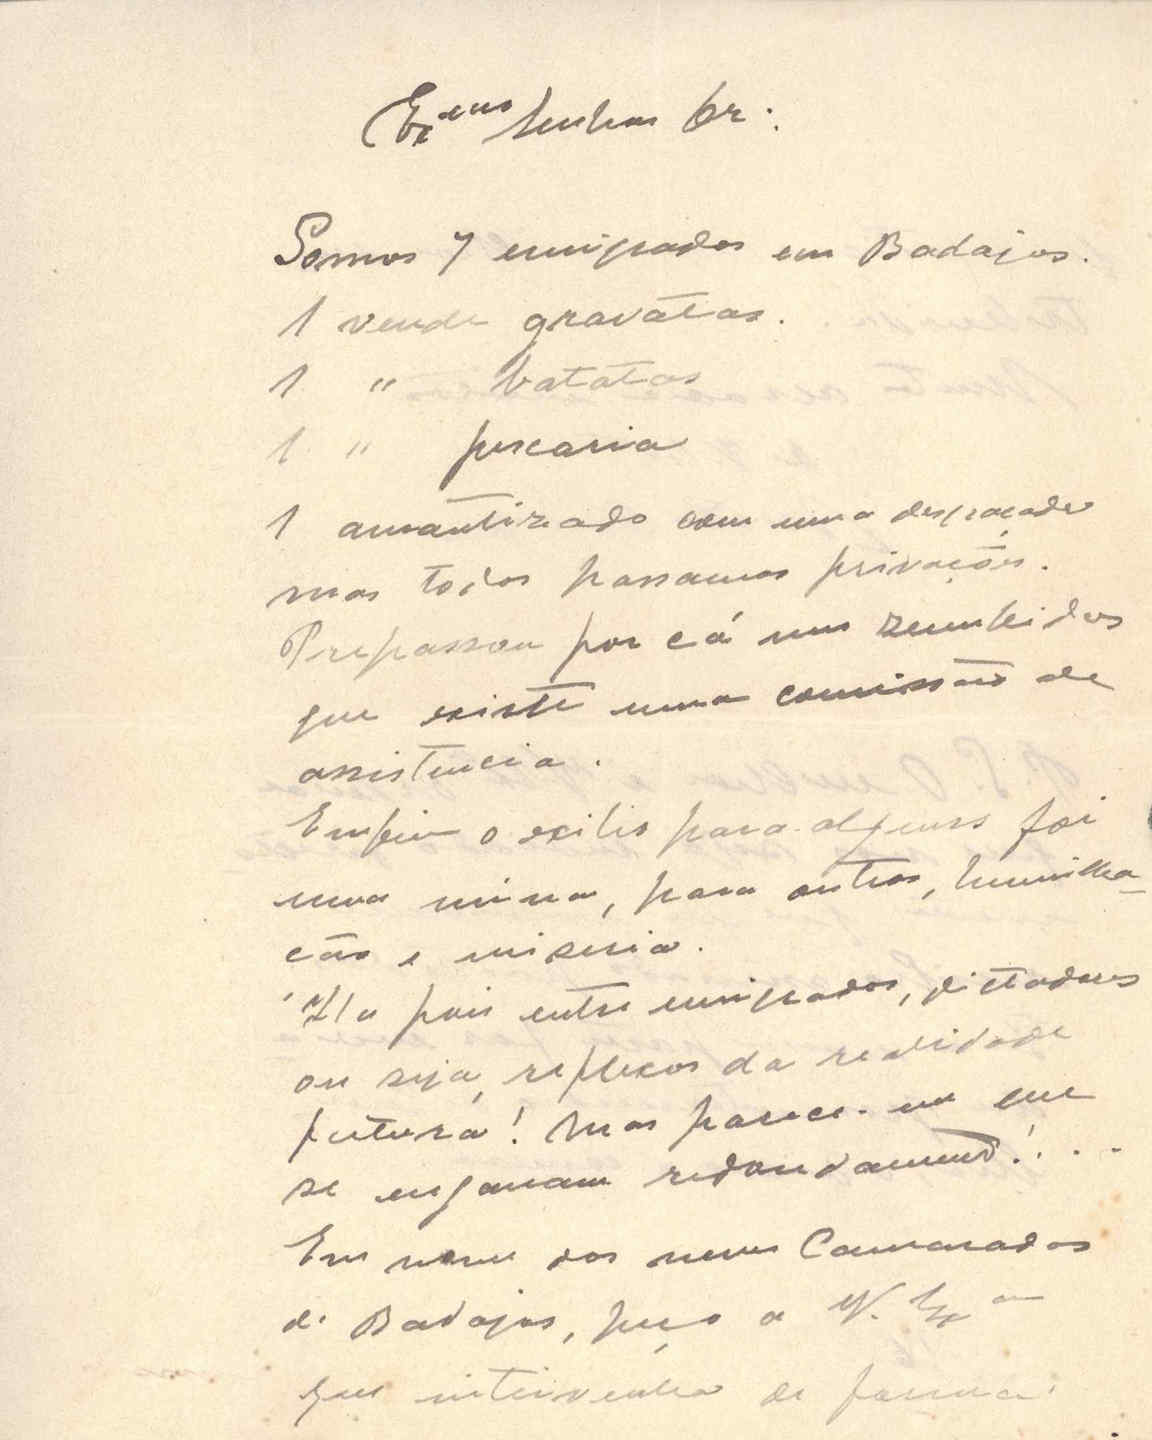 Exmo Senhor Dr:
Somos 7 emigrados em Badajos.
1 vende gravatas.
1 " batatas
1 " pescaria
1 amantizado com uma desgraçada
mas todos passamos privações.
Prepassou por cá um zumbidos
que existe uma comissão de
assistencia.
Emfim o exilio para alguns foi
uma mina, para outros, humilha-
ção e miseria.
Ha pois entre emigrados, dictadores
ou seja, reflexos da realidade
futura! Mas parece-me que
se enganam redondamente!...
Em nome dos meus Camaradas
de Badajos, peço a V. Exa
que intervenha de forma